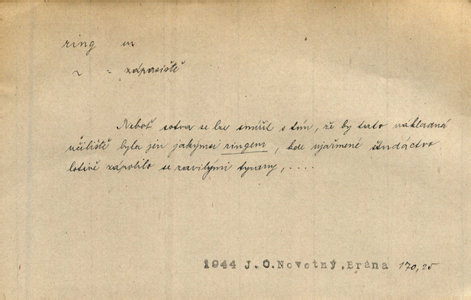 ring m
" = zápasiště
Neboť sotva se lze smířit s tím, že by tato nákladná
učiliště byla jen jakýmsi ringem, kde ujařmené studáctvo
lstivě zápolilo se zavilými tyrany, ....
1944 J.O.Novotný,Brána 170,25